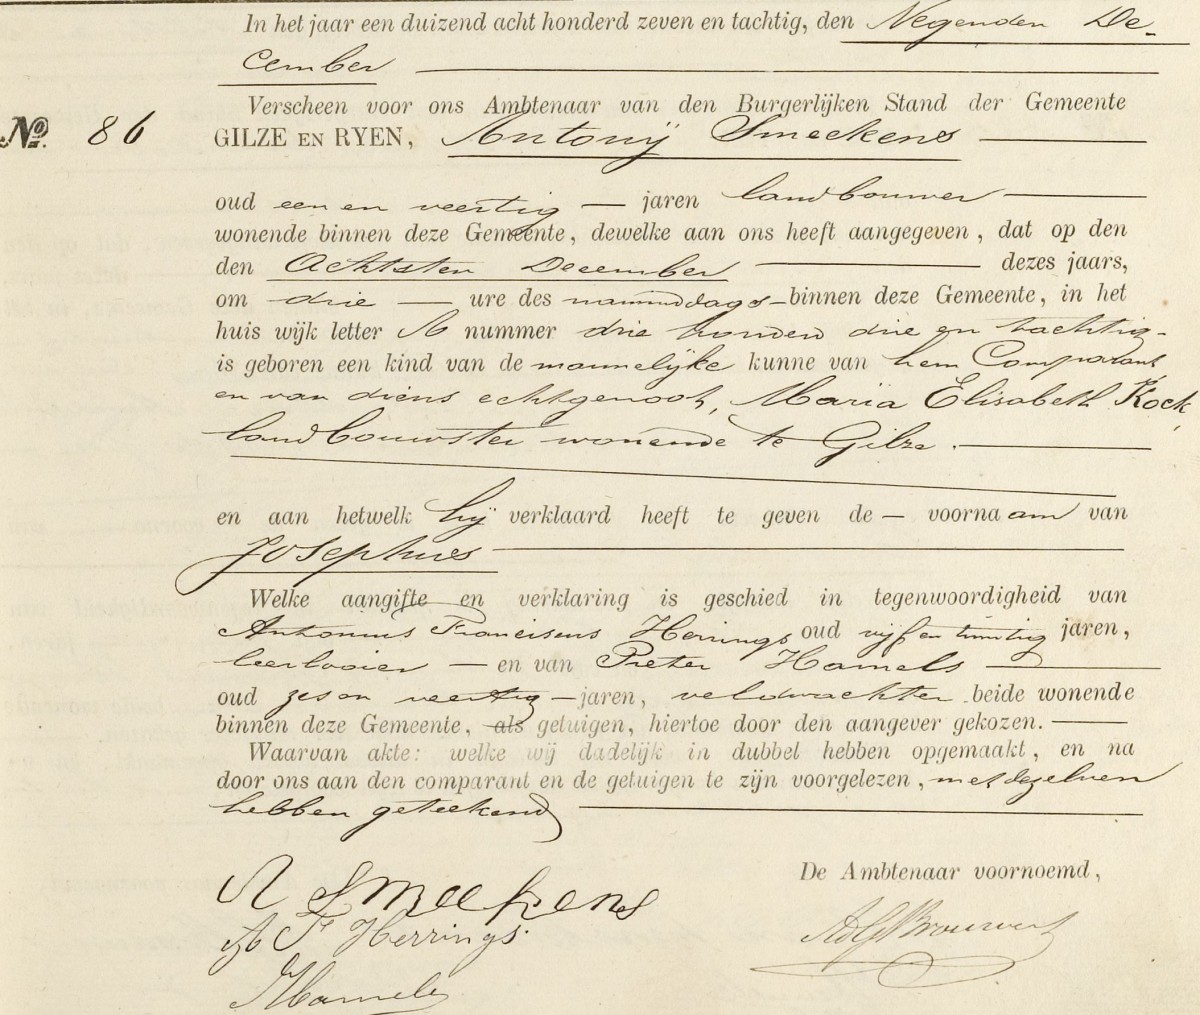 In het jaar een duizend acht honderd zeven en tachtig, den Negenden De-
cember
Verscheen voor ons Ambtenaar van den Burgerlijken Stand der Gemeente
No. 86 GILZE EN RYEN, Antonij Smeekens
oud een en veertig — jaren landbouwer
wonende binnen deze Gemeente, dewelke aan ons heeft aangegeven, dat op den
den Achtsten December dezes jaars,
om drie — ure des namiddags binnen deze Gemeente, in het
huis wijk letter A nummer drie honderd drie en tachtig
is geboren een kind van de mannelijke kunne van hem Comparant
en van diens echtgenoot, Maria Elisabeth Kock,
landbouwster wonende te Gilze.
en aan hetwelk hij verklaard heeft te geven de — voornaam van
Josephus
Welke aangifte en verklaring is geschied in tegenwoordigheid van
Antonius Franciscus Herrings oud vijf en twintig jaren,
leerlooier — en van Pieter Hamels
oud zes en veertig — jaren, veldwachter beide wonende
binnen deze Gemeente, als getuigen, hiertoe door den aangever gekozen.
Waarvan akte: welke wij dadelijk in dubbel hebben opgemaakt, en na
door ons aan den comparant en de getuigen te zijn voorgelezen, met dezelven
hebben geteekend
De Ambtenaar voornoemd,
A Smeekens
A F Herrings
Hamels